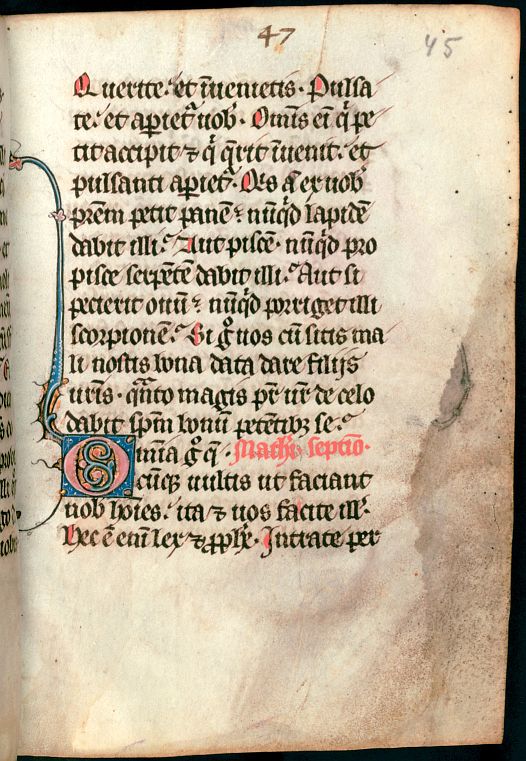 47
45
Querite. et īuenietis. Pulsa
te. et apiet᷑ uob̄. Om̄is eī q̇ pe
tit accipit ⁊ q̇ q̄rit īuenit. et
pulsanti apiet᷑. Q̄is a͛ ex uob̄
pr̄em petit panē. nūq̇d lapidē
dabit illi. Aut piscē. nūq̇d pro
pisce serpētē dabit illi. Aut si
pecierit ouū. nūq̇d porriget illi
scorpionē. Si g̊ uos cū sitis ma
li nostis bona data dare filijs
ur̄is. q̄nto magis pr̄ ur̄ de celo
dabit sp̄m bonū petētibꝫ se.
Omīa g̊ q̄ . Mathi septīo.
cūqꝫ uultis ut faciant
uob̄ hoīes. ita ⁊ uos facite ill̄.
Hec ē enī lex ⁊ ꝓph̄e. Intrate per